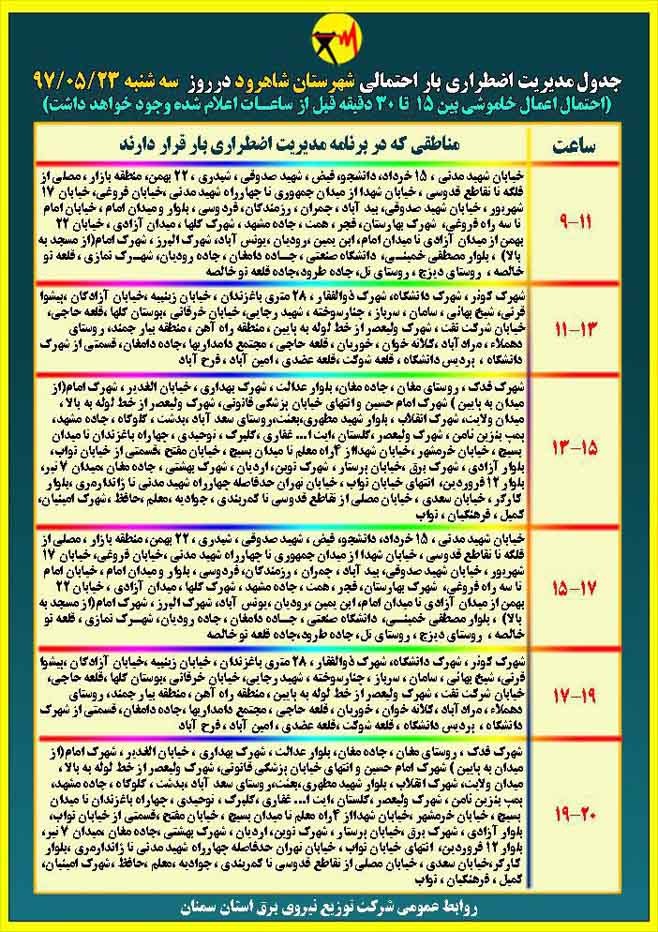 جدول مدیریت اضطراری بار احتمالی شهرستان شاهرود درروز سه شنبه ۹۷/۰۵/۲۳
(احتمال اعمال خاموشی بین ۱۵ تا ۳۰ دقیقه قبل از ساعات اعلام شده وجود خواهد داشت)
ساعت
مناطقی که در برنامه مدیریت اضطراری بار قرار دارند
۹-۱۱
خیابان شهید مدنی ، ۱۵ خرداد، دانشجو، فیض ، شهید صدوقی ، شیدری ، ۲۲ بهمن، منطقه بازار ، مصلی از
فلکه تا تقاطع قدوسی ، خیابان شهدا از میدان جمهوری تا چهارراه شهید مدنی ،خیابان فروغی، خیابان ۱۷
شهریور ، خیابان شهید صدوقی، بید آباد ، چمران ، رزمندگان، فردوسی ، بلوار و میدان امام ، خیابان امام
تا سه راه فروغی، شهرک بهارستان، فجر ، همت ، جاده مشهد ، شهرک گلها ، میدان آزادی ، خیابان ۲۲
بهمن از میدان آزادی تا میدان امام، ابن یمین ،رودیان ،یونس آباد، شهرک البرز ، شهرک امام(از مسجد به
بالا) ، بلوار مصطفی خمینی، دانشگاه صنعتی ، جاده دامغان ، جاده رودیان، شهرک نمازی ، قلعه نو
خالصه ، روستای دیزج ، روستای تل، جاده طرود،جاده قلعه نو خالصه
۱۱-۱۳
شهرک کوثر ، شهرک دانشگاه، شهرک ذوالفقار ، ۲۸ متری باغزندان ، خیابان زینبیه ،خیابان آزادگان ،پیشوا
قرنی، شیخ بهائی ، سامان ، سرباز ، چنارسوخته ، شهید رجایی، خیابان خرقانی ،بوستان گلها ،قلعه حاجی،
خیابان شرکت نفت ، شهرک ولیعصر از خط لوله به پایین ، منطقه راه آهن ، منطقه بیار جمند، روستای
دهملاء ، مراد آباد ،کلاته خوان ، خوریان ، قلعه حاجی ، مجتمع دامداریها ،جاده دامغان، قسمتی از شهرک
دانشگاه ، پردیس دانشگاه ، قلعه شوکت، قلعه عضدی ، امین آباد ، فرح آباد
۱۳-۱۵
شهرک فدک ، روستای مغان ، جاده مغان، بلوار عدالت ، شهرک بهداری ، خیابان الغدیر ، شهرک امام(از
میدان به پایین ) شهرک امام حسین و انتهای خیابان پزشکی قانونی، شهرک ولیعصر از خط لوله به بالا،
میدان ولایت، شهرک انقلاب ، بلوار شهید مطهری،بعثت،روستای سعد آباد، بدشت ، کلوگاه ، جاده مشهد،
پمپ بنزین ثامن ، شهرک ولیعصر ، گلستان ،ایت ا... غفاری ، گلبرگ ، توحیدی ، چهاراه باغزندان تا میدان
بسیج ، خیابان خرمشهر ، خیابان شهدااز ۴راه معلم تا میدان بسیج ، خیابان مفتح ،قسمتی از خیابان نواب،
بلوار آزادی ، شهرک برق ،خیابان پرستار ، شهرک نوین، اردیان ، شهرک بهشتی ، جاده مغان ،میدان ۷ تیر،
بلوار ۱۲ فروردین، انتهای خیابان نواب ، خیابان تهران حدفاصله چهارراه شهید مدنی تا ژاندارمری، بلوار
کارگر ، خیابان سعدی ، خیابان مصلی از تقاطع قدوسی تا کمربندی ، جوادیه ،معلم ،حافظ ، شهرک امینیان،
کمیل ، فرهنگیان ، نواب
۱۵-۱۷
خیابان شهید مدنی ، ۱۵ خرداد، دانشجو، فیض ، شهید صدوقی ، شیدری ، ۲۲ بهمن، منطقه بازار ، مصلی از
فلکه تا تقاطع قدوسی ، خیابان شهدا از میدان جمهوری تا چهارراه شهید مدنی ،خیابان فروغی، خیابان ۱۷
شهریور ، خیابان شهید صدوقی، بید آباد ، چمران ، رزمندگان، فردوسی ، بلوار و میدان امام ، خیابان امام
تا سه راه فروغی، شهرک بهارستان، فجر ، همت ، جاده مشهد ، شهرک گلها ، میدان آزادی ، خیابان ۲۲
بهمن از میدان آزادی تا میدان امام، ابن یمین ،رودیان ،یونس آباد، شهرک البرز ، شهرک امام(از مسجد به
بالا) ، بلوار مصطفی خمینی، دانشگاه صنعتی ، جاده دامغان ، جاده رودیان، شهرک نمازی ، قلعه نو
خالصه ، روستای دیزج ، روستای تل، جاده طرود،جاده قلعه نو خالصه
۱۷-۱۹
شهرک کوثر ، شهرک دانشگاه، شهرک ذوالفقار ، ۲۸ متری باغزندان ، خیابان زینبیه ،خیابان آزادگان ،پیشوا
قرنی، شیخ بهائی ، سامان ، سرباز ، چنارسوخته ، شهید رجایی، خیابان خرقانی ،بوستان گلها ،قلعه حاجی،
خیابان شرکت نفت ، شهرک ولیعصر از خط لوله به پایین ، منطقه راه آهن ، منطقه بیار جمند، روستای
دهملاء ، مراد آباد ،کلاته خوان ، خوریان ، قلعه حاجی ، مجتمع دامداریها ،جاده دامغان، قسمتی از شهرک
دانشگاه ، پردیس دانشگاه ، قلعه شوکت، قلعه عضدی ، امین آباد ، فرح آباد
۱۹-۲۰
شهرک فدک ، روستای مغان ، جاده مغان، بلوار عدالت ، شهرک بهداری ، خیابان الغدیر ، شهرک امام(از
میدان به پایین ) شهرک امام حسین و انتهای خیابان پزشکی قانونی، شهرک ولیعصر از خط لوله به بالا،
میدان ولایت، شهرک انقلاب ، بلوار شهید مطهری،بعثت،روستای سعد آباد، بدشت ، کلوگاه ، جاده مشهد،
پمپ بنزین ثامن ، شهرک ولیعصر ، گلستان ،ایت ا... غفاری ، گلبرگ ، توحیدی ، چهاراه باغزندان تا میدان
بسیج ، خیابان خرمشهر ، خیابان شهدااز ۴راه معلم تا میدان بسیج ، خیابان مفتح ،قسمتی از خیابان نواب،
بلوار آزادی ، شهرک برق ،خیابان پرستار ، شهرک نوین، اردیان ، شهرک بهشتی ،جاده مغان ،میدان ۷ تیر،
بلوار ۱۲ فروردین، انتهای خیابان نواب ، خیابان تهران حدفاصله چهارراه شهید مدنی تا ژاندارمری، بلوار
کارگر،خیابان سعدی ، خیابان مصلی از تقاطع قدوسی تا کمربندی ، جوادیه ،معلم ،حافظ ،شهرک امینیان،
کمیل ، فرهنگیان ، نواب
روابط عمومی شرکت توزیع نیروی برق استان سمنان